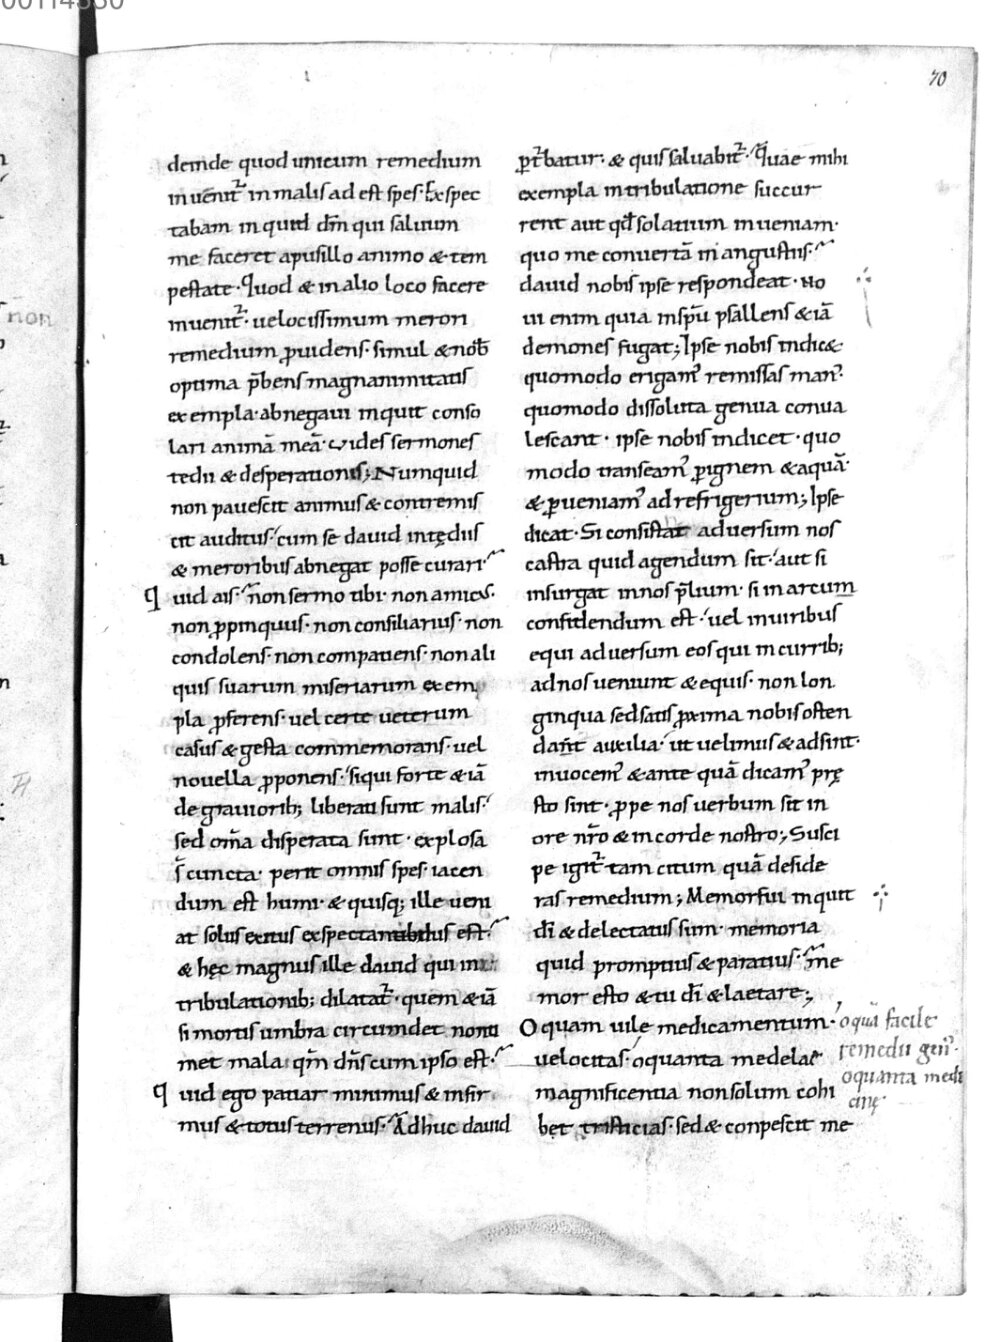 70
deinde quod unicum remedium
inuenit᷑ in malis ad est spes. Exspec
tabam inquid dm̄ qui saluum
me faceret apusillo animo & tem
pestate. Quod & in alio loco facere
inuenit᷑. uelocissimum merori
remedium ꝓuidens. simul & nob̄
optima p̄bens magnanimitatis
exempla. abnegaui inquit conso
lari animā meā. Vides sermones
tedii & desperationis; Numquid
non pauescit animus & contremis
cit auditus. cum se dauid intędiis
& meroribus abnegat posse curari.
Q uid ais. non sermo tibi. non amicus.
non ꝓpinquus. non consiliarius. non
condolens. non compatiens. non ali
quis suarum miseriarum exem
pla ꝓferens. uel certe ueterum
casus & gesta commemorans. uel
nouella ꝓponens. siqui forte & iā
de grauiorib; liberati sunt malis.
sed om̄a disperata sunt. explosa
s̄ cuncta. periit omnis spes. iacen
dum est humi. & quisq; ille ueni
at solus exitus exspectantibus est.
& hęc magnus ille dauid qui in
tribulationib; dilatat᷑. quem & iā
si mortis umbra circumdet non ti
met mala. qm̄ dn̄s cum ipso est.
Q uid ego patiar minimus & infir
mus & totus terrenus. Adhuc dauid
ꝑt᷑batur. & quis saluabit᷑. Quae mihi
exempla intribulatione succur
rent aut qd̄ solatium inueniam.
quo me conuertā in angustiis.
dauid nobis ipse respondeat. No
ui enim quia insp̄u psallens & iā
demones fugat; Ipse nobis indic&
quomodo erigam᷒ remissas man᷒.
quomodo dissoluta genua conua
lescant. ipse nobis indicet. quo
modo transeam᷒ ꝑignem & aquā.
& ꝑueniam᷒ ad refrigerium; Ipse
dicat. Si consistat aduersum nos
castra quid agendum sit. aut si
insurgat innos p̄lium. si in arcum
confidendum est. uel inuiribus
equi aduersum eos qui incurrib;
ad nos ueniunt & equis. non lon
ginqua sed satis ꝓxima nobis osten
dan̄t auxilia. ut uelimus & adsint.
inuocem᷒ & ante quā dicam᷒ prę
sto sint. ꝓpe nos uerbum sit in
ore nr̄o & in corde nostro; Susci
pe igit᷑ tam citum quā deside
ras remedium; Memor fui inquit
dī & delectatus sum. memoria
quid promptius & paratius. me
mor esto & tu dī & laetare;
O quam uile medicamentum.
uelocitas. o quanta medelae
magnificentia non solum cohi
bet tristicias. sed & conpescit me
o quā facile
remedii gen᷒.
o quanta medi
cinę.